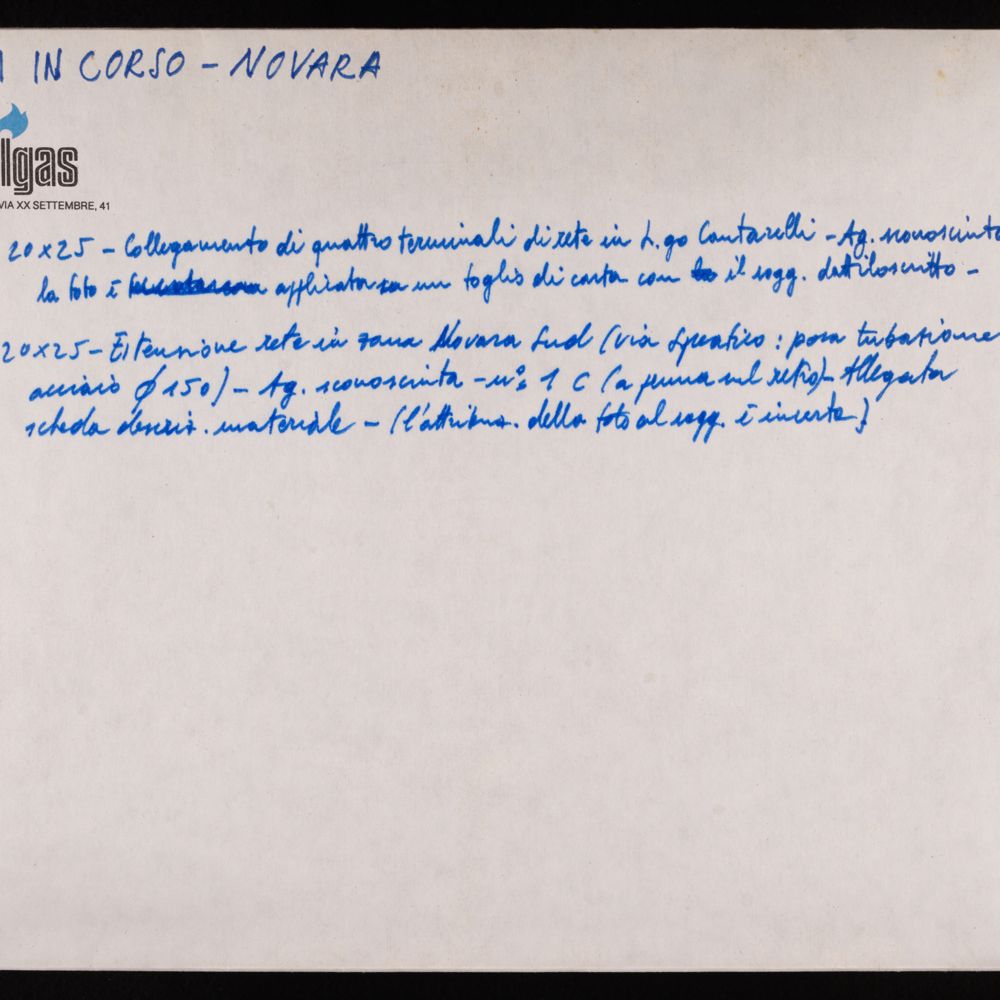 I IN CORSO - NOVARA
lgas
VIA XX SETTEMBRE, 41
20x25 - Collegamento di quattro terminali di rete in L.go Cantarelli - Ag. sconosciuta
la foto è applicata su un foglio di carta con il sogg. dattiloscritto -
20x25 - Estensione rete in zona Novara Sud (via Spreafico: posa tubazione
acciaio Ø 150) - Ag. sconosciuta - n° 1 C (a penna sul retro) - Allegata
scheda descriz. materiale - (l'attribuz. della foto al sogg. è incerta)